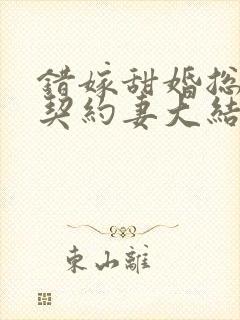 錯嫁甜婚總
契約妻大結
東山離